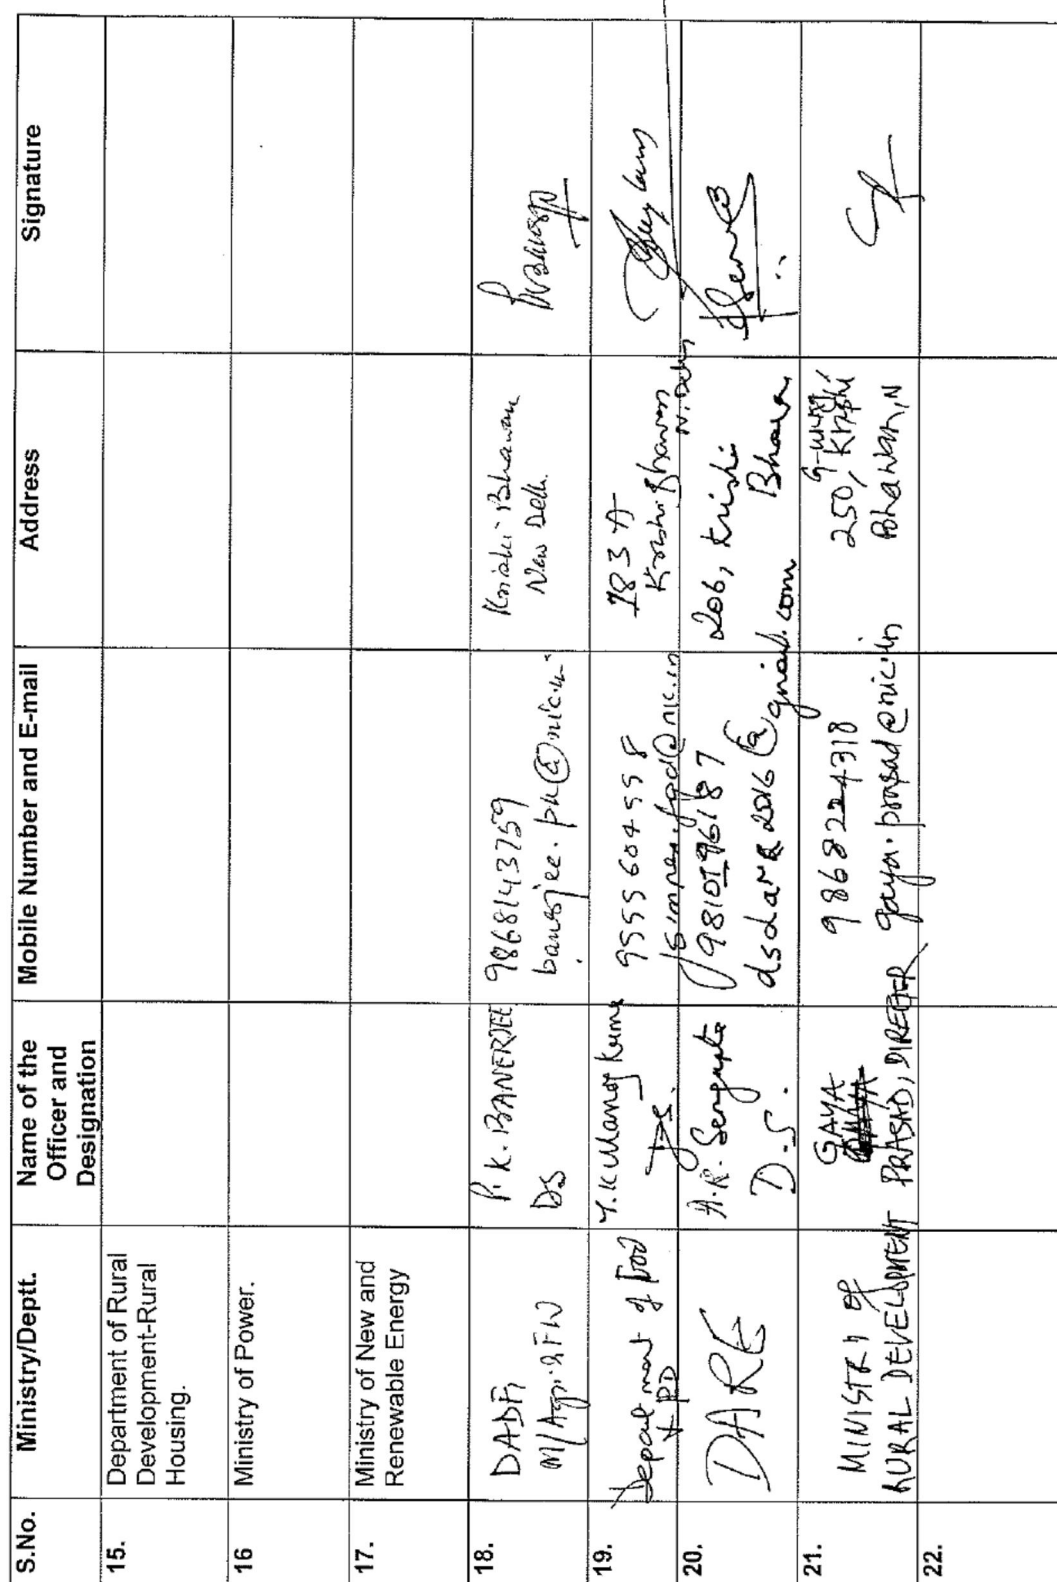 S.No.
Ministry/Deptt.
Name of the
Officer and
Designation
Mobile Number and E-mail
Address
Signature
15.
Department of Rural
Development-Rural
Housing.
16
Ministry of Power.
17.
Ministry of New and
Renewable Energy
18.
DADF,
M/Agri. & FW
P. K. BANERJEE
DS
9868143759
banerjee.pk@nic.in
Krishi Bhawan
New Delhi
19.
Department of Food
& PD
Y. K Manoj Kumar
DS.
9555604558
183 A
Krishi Bhawan
N. Delhi
20.
DARE
A.R. Sengupta
D.S.
9810196187
dsdare2016@gmail.com
206, Krishi
Bhavan
21.
MINISTRY OF
RURAL DEVELOPMENT
GAYA
PRASAD, DIRECTOR
9868224318
gaya.prasad@nic.in
250, Krishi
Bhawan, N
22.